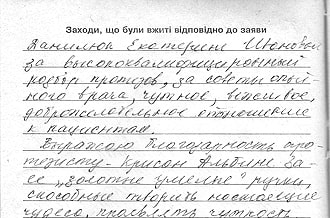 Заходи, що були вжиті відповідно до заяви
Данилюк Екатерине Ивановне
за высококвалифицированный
подбор протезов, за советы опыт-
ного врача, чуткое, вежливое,
доброжелательное отношение
к пациентам.
Выражаю благодарность про-
тезисту Альбине за
ее „золотые умелые" ручки,
способные творить настоящие
чудеса, проявлять чуткость